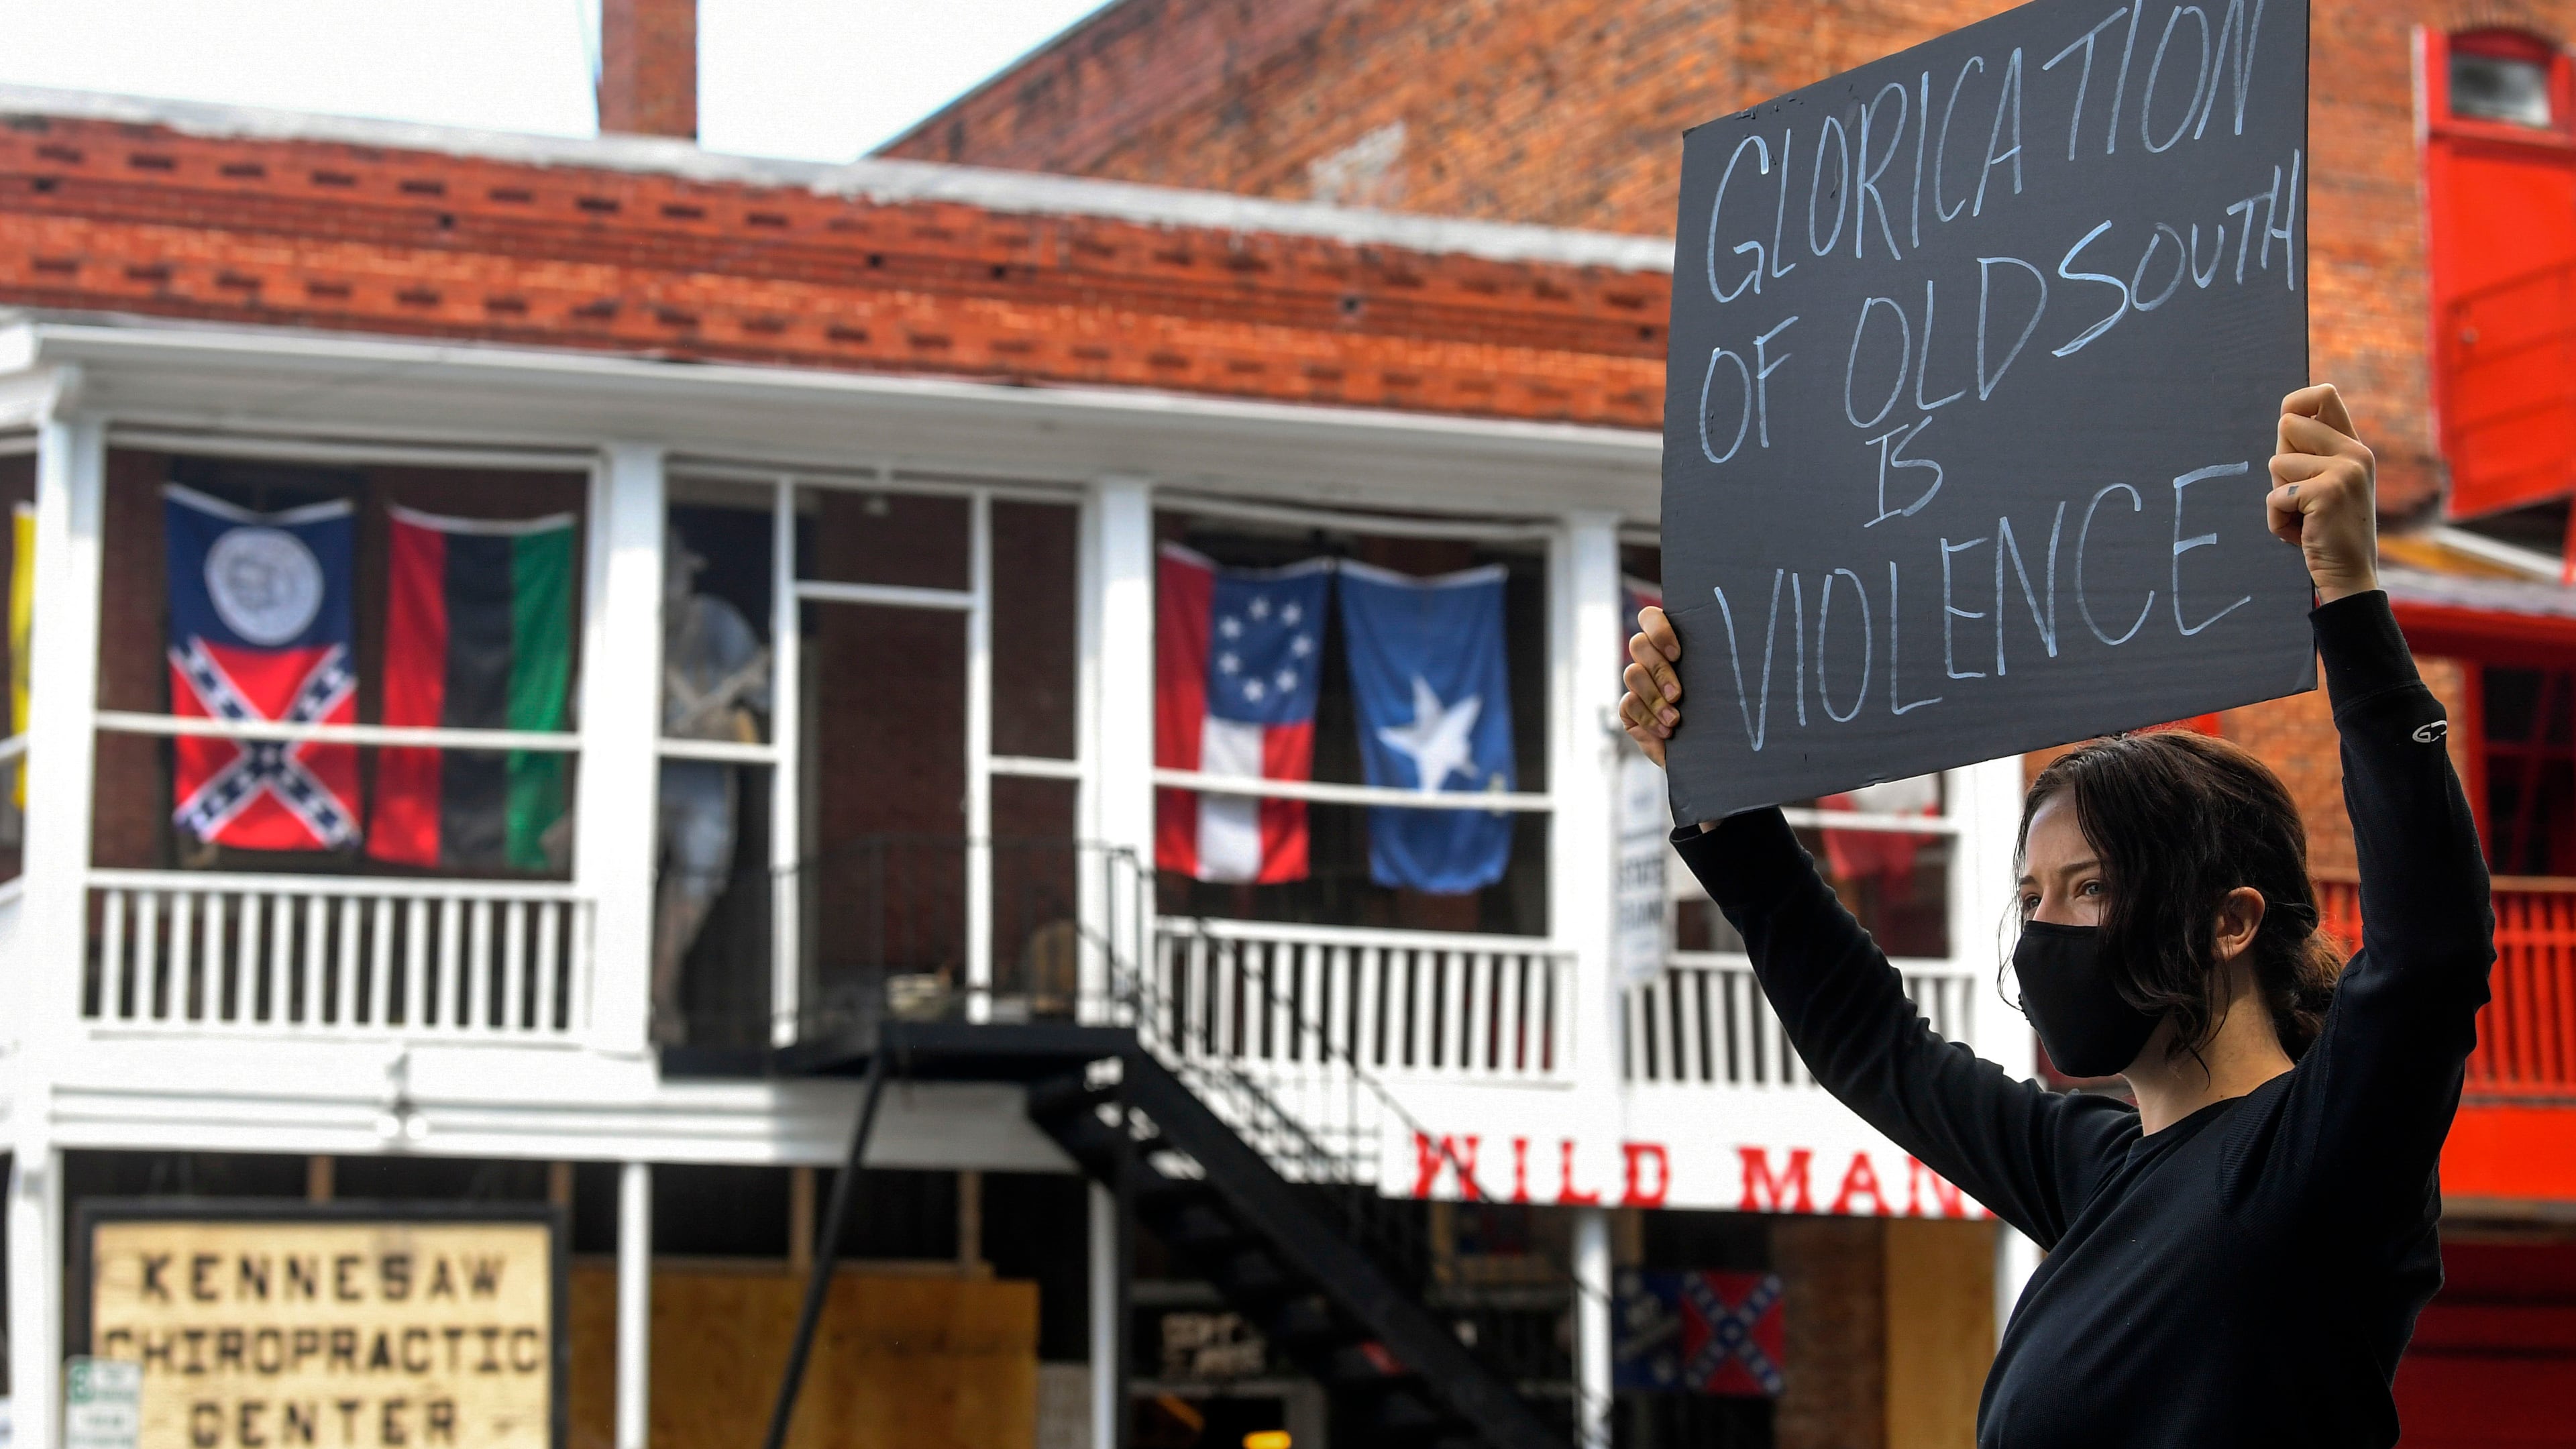 GLORICATION
OF OLD SOUTH
IS
VIOLENCE
WILD MAN
KENNESAW
CHIROPRACTIC
CENTER